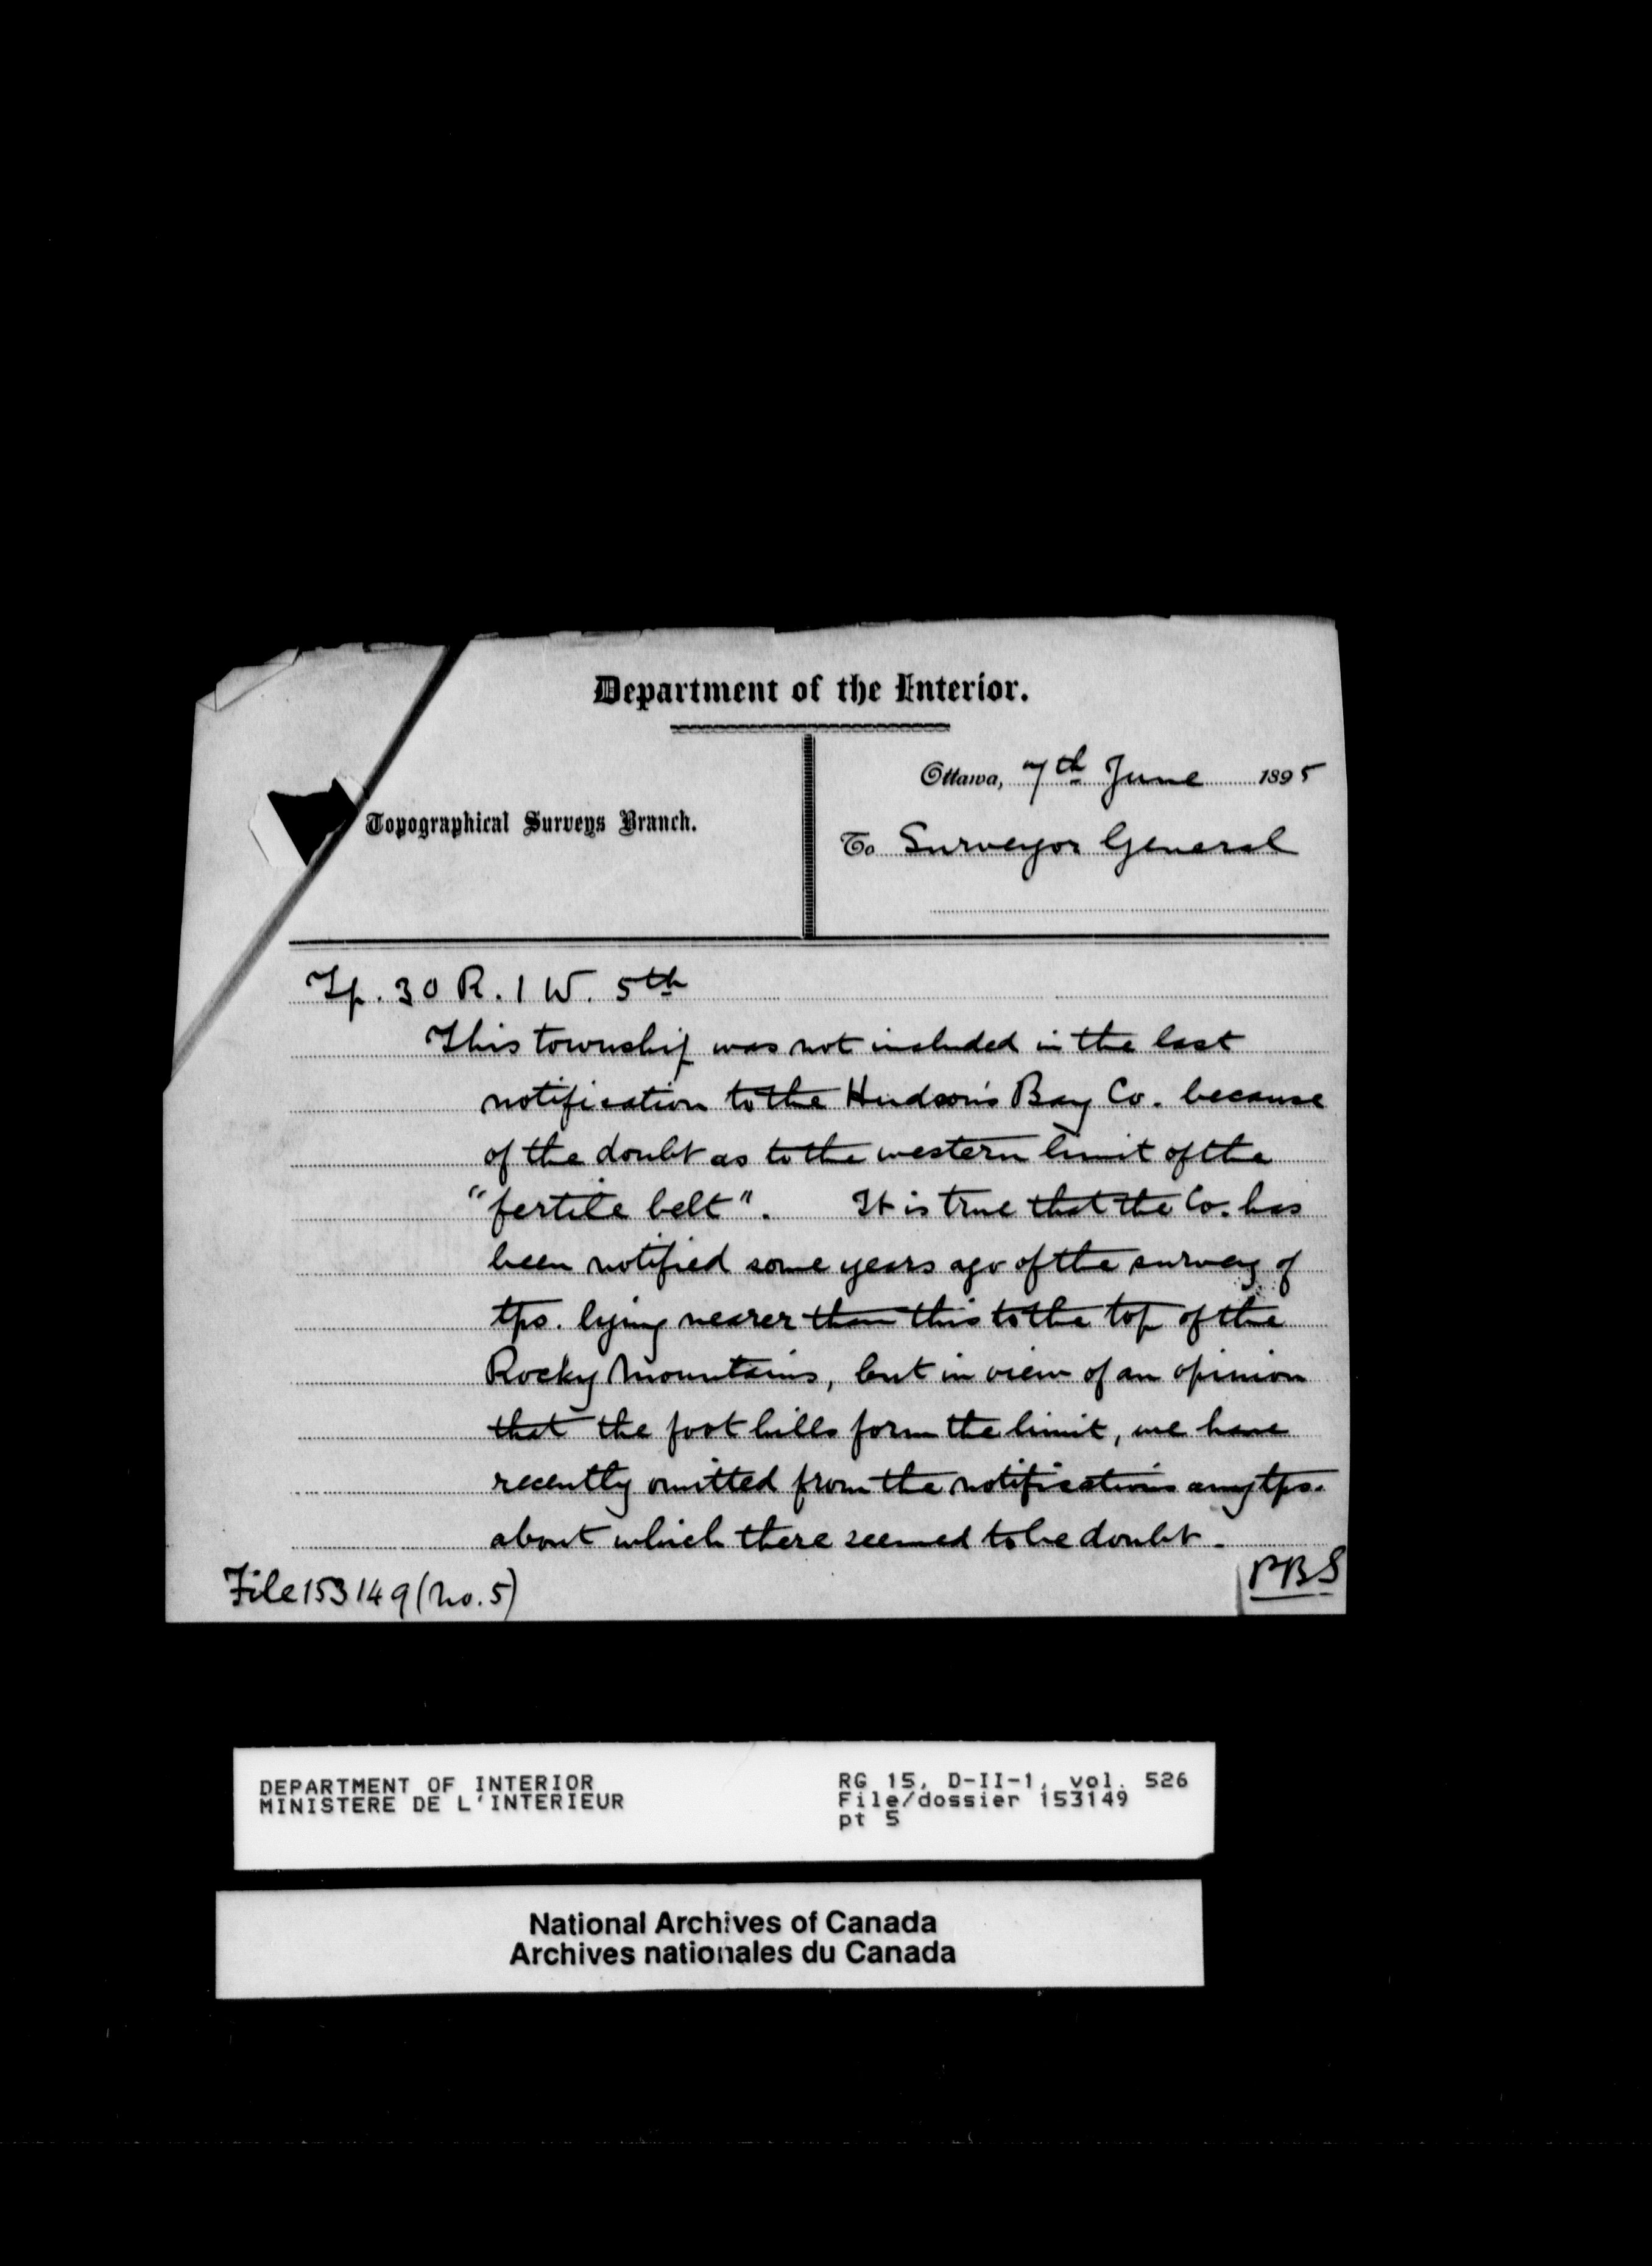 Department of the Interior.
Topographical Surveys Branch.
Ottawa, 7th June 1895
To Surveyor General
Tp. 30 R. 1 W. 5th
This township was not included in the last
notification to the Hudson's Bay Co. because
of the doubt as to the western limit of the
"fertile belt". It is true that the Co. has
been notified some years ago of the survey of
tps. lying nearer than this to the top of the
Rocky Mountains, but in view of an opinion
that the foot hills form the limit, we have
recently omitted from the notifications any tps.
about which there seemed to be doubt.
PBS
File 153149 (No. 5)
DEPARTMENT OF INTERIOR
MINISTERE DE L'INTERIEUR
RG 15, D-II-1, vol. 526
File/dossier 153149
pt 5
National Archives of Canada
Archives nationales du Canada